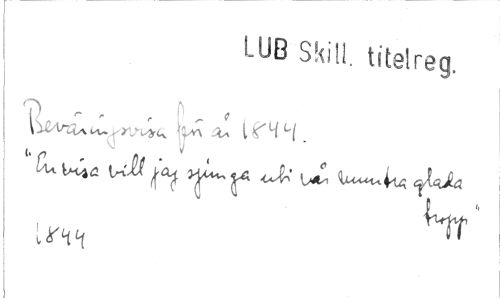 LUB Skill. titelreg.
Beväringsvisa för år 1844.
"En visa vill jag sjunga uti vår muntra glada
tropp"
1844